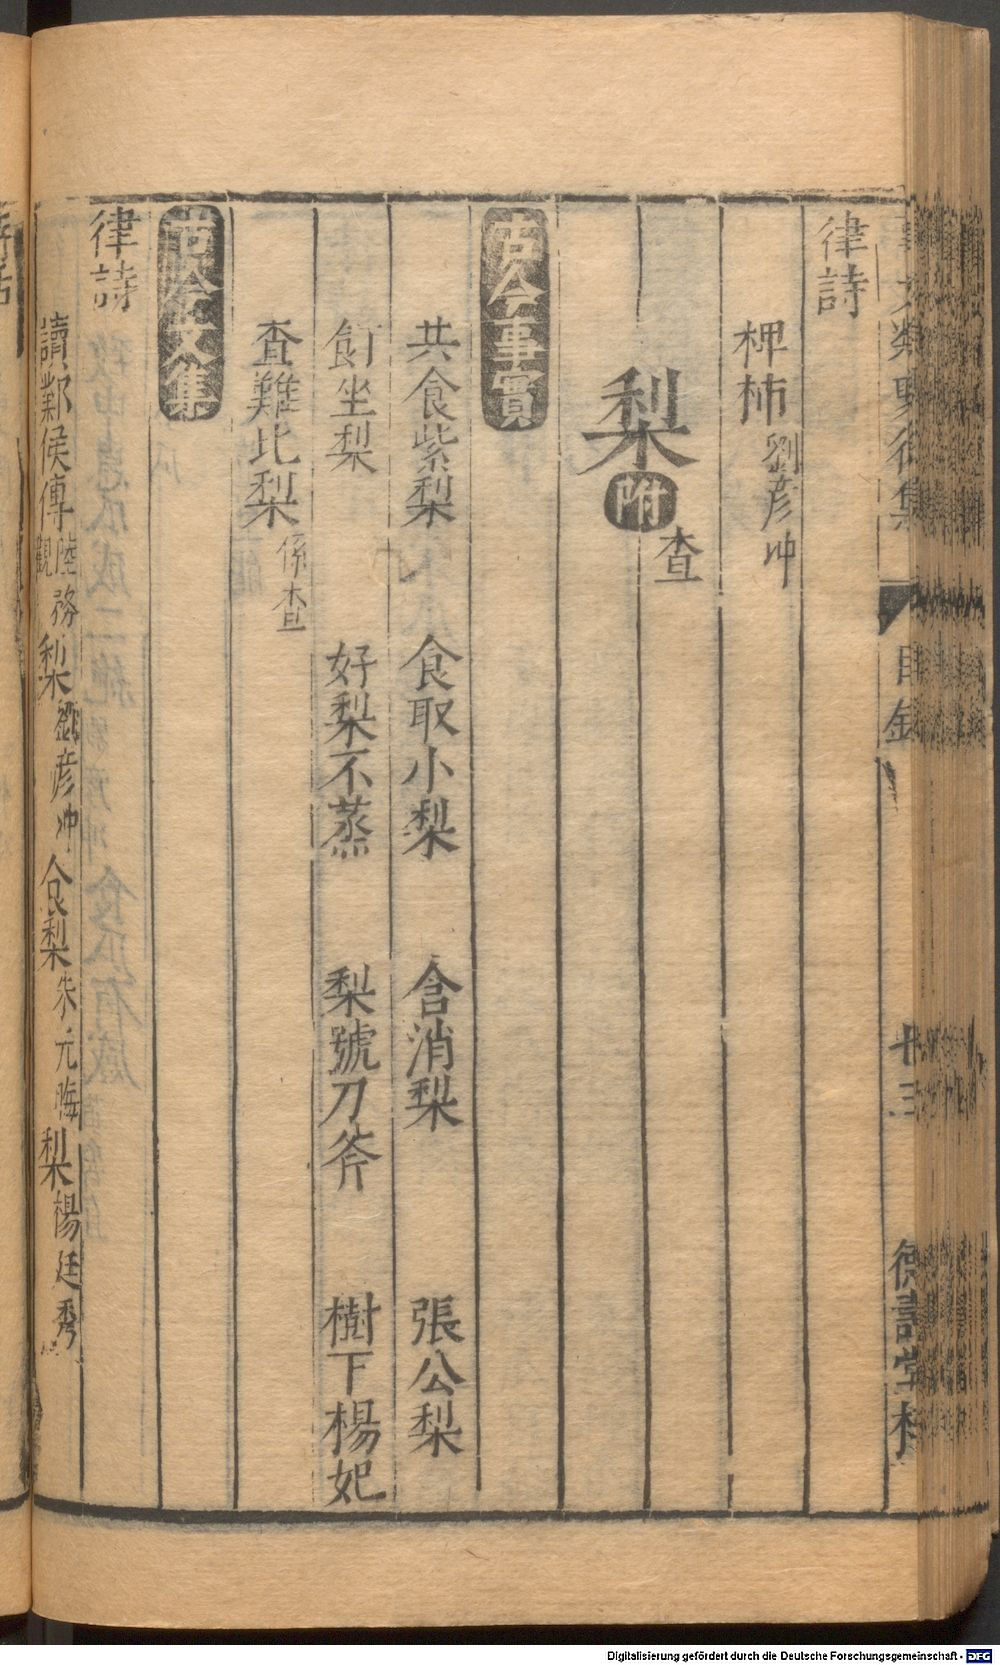 律詩
椑柿 劉彥冲
梨 附 查
古今事實
共食紫梨 食取小梨 含消梨 張公梨
飣坐梨 好梨不蒸 梨號刀斧 樹下楊妃
查難比梨 係查
古今文集
律詩
讀鄴侯傳 陸務觀 梨 劉彥冲 食梨 朱元晦 梨 楊廷秀
目錄
廿三
德壽堂梓
Digitalisierung gefördert durch die Deutsche Forschungsgemeinschaft - DFG